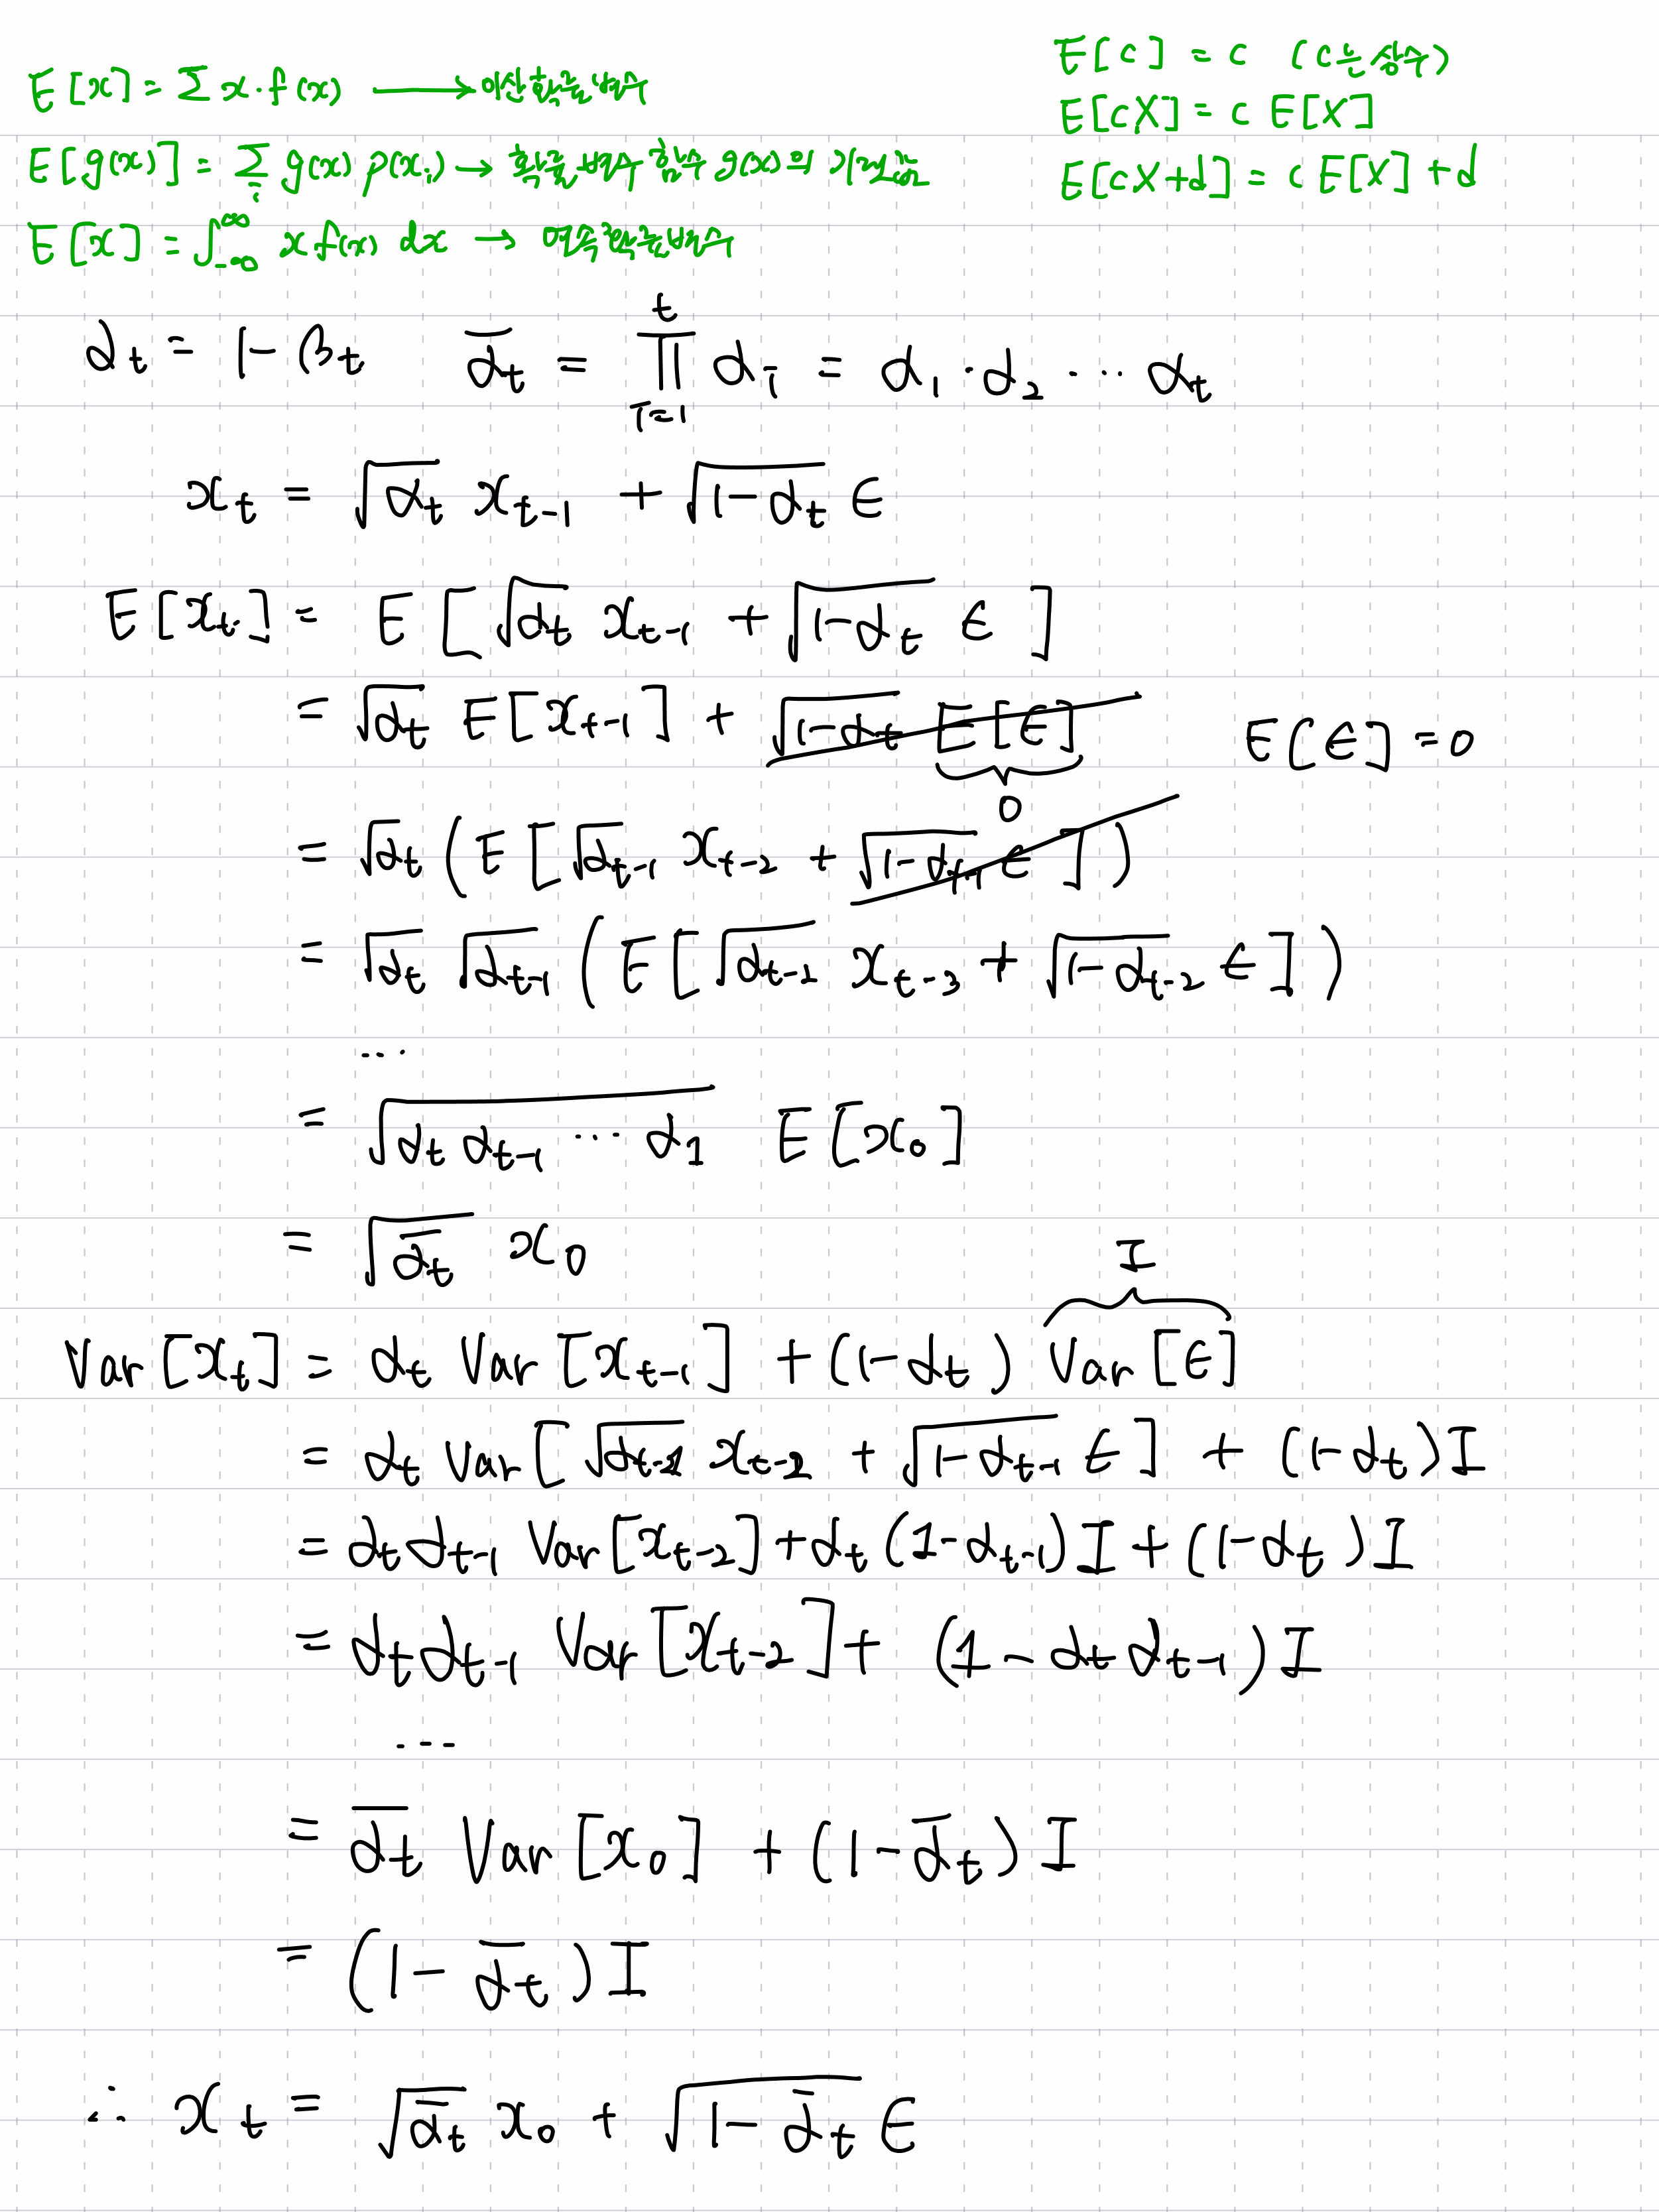 E[x] = Σ x·f(x) → 이산확률변수
E[c] = c (c는 상수)
E[cX] = c E[X]
E[g(x)] = Σ_i g(x) p(x_i) → 확률변수 함수 g(x)의 기댓값
E[cX+d] = c E[X] + d
E[x] = ∫_{-∞}^{∞} x f(x) dx → 연속확률변수
α_t = 1-β_t  ᾱ_t = ∏_{i=1}^{t} α_i = α_1·α_2 ⋯ α_t
x_t = √α_t x_{t-1} + √(1-α_t) ε
E[x_t] = E[√α_t x_{t-1} + √(1-α_t) ε]
= √α_t E[x_{t-1}] + √(1-α_t) E[ε]  E[ε] = 0
0
= √α_t (E[√α_{t-1} x_{t-2} + √(1-α_{t-1}) ε])
= √α_t √α_{t-1} (E[√α_{t-2} x_{t-3} + √(1-α_{t-2}) ε])
...
= √(α_t α_{t-1} ⋯ α_1) E[x_0]
= √ᾱ_t x_0
I
Var[x_t] = α_t Var[x_{t-1}] + (1-α_t) Var[ε]
= α_t Var[√α_{t-1} x_{t-2} + √(1-α_{t-1}) ε] + (1-α_t)I
= α_t α_{t-1} Var[x_{t-2}] + α_t (1-α_{t-1})I + (1-α_t)I
= α_t α_{t-1} Var[x_{t-2}] + (1-α_t α_{t-1})I
...
= ᾱ_t Var[x_0] + (1-ᾱ_t)I
= (1-ᾱ_t)I
∴ x_t = √ᾱ_t x_0 + √(1-ᾱ_t) ε